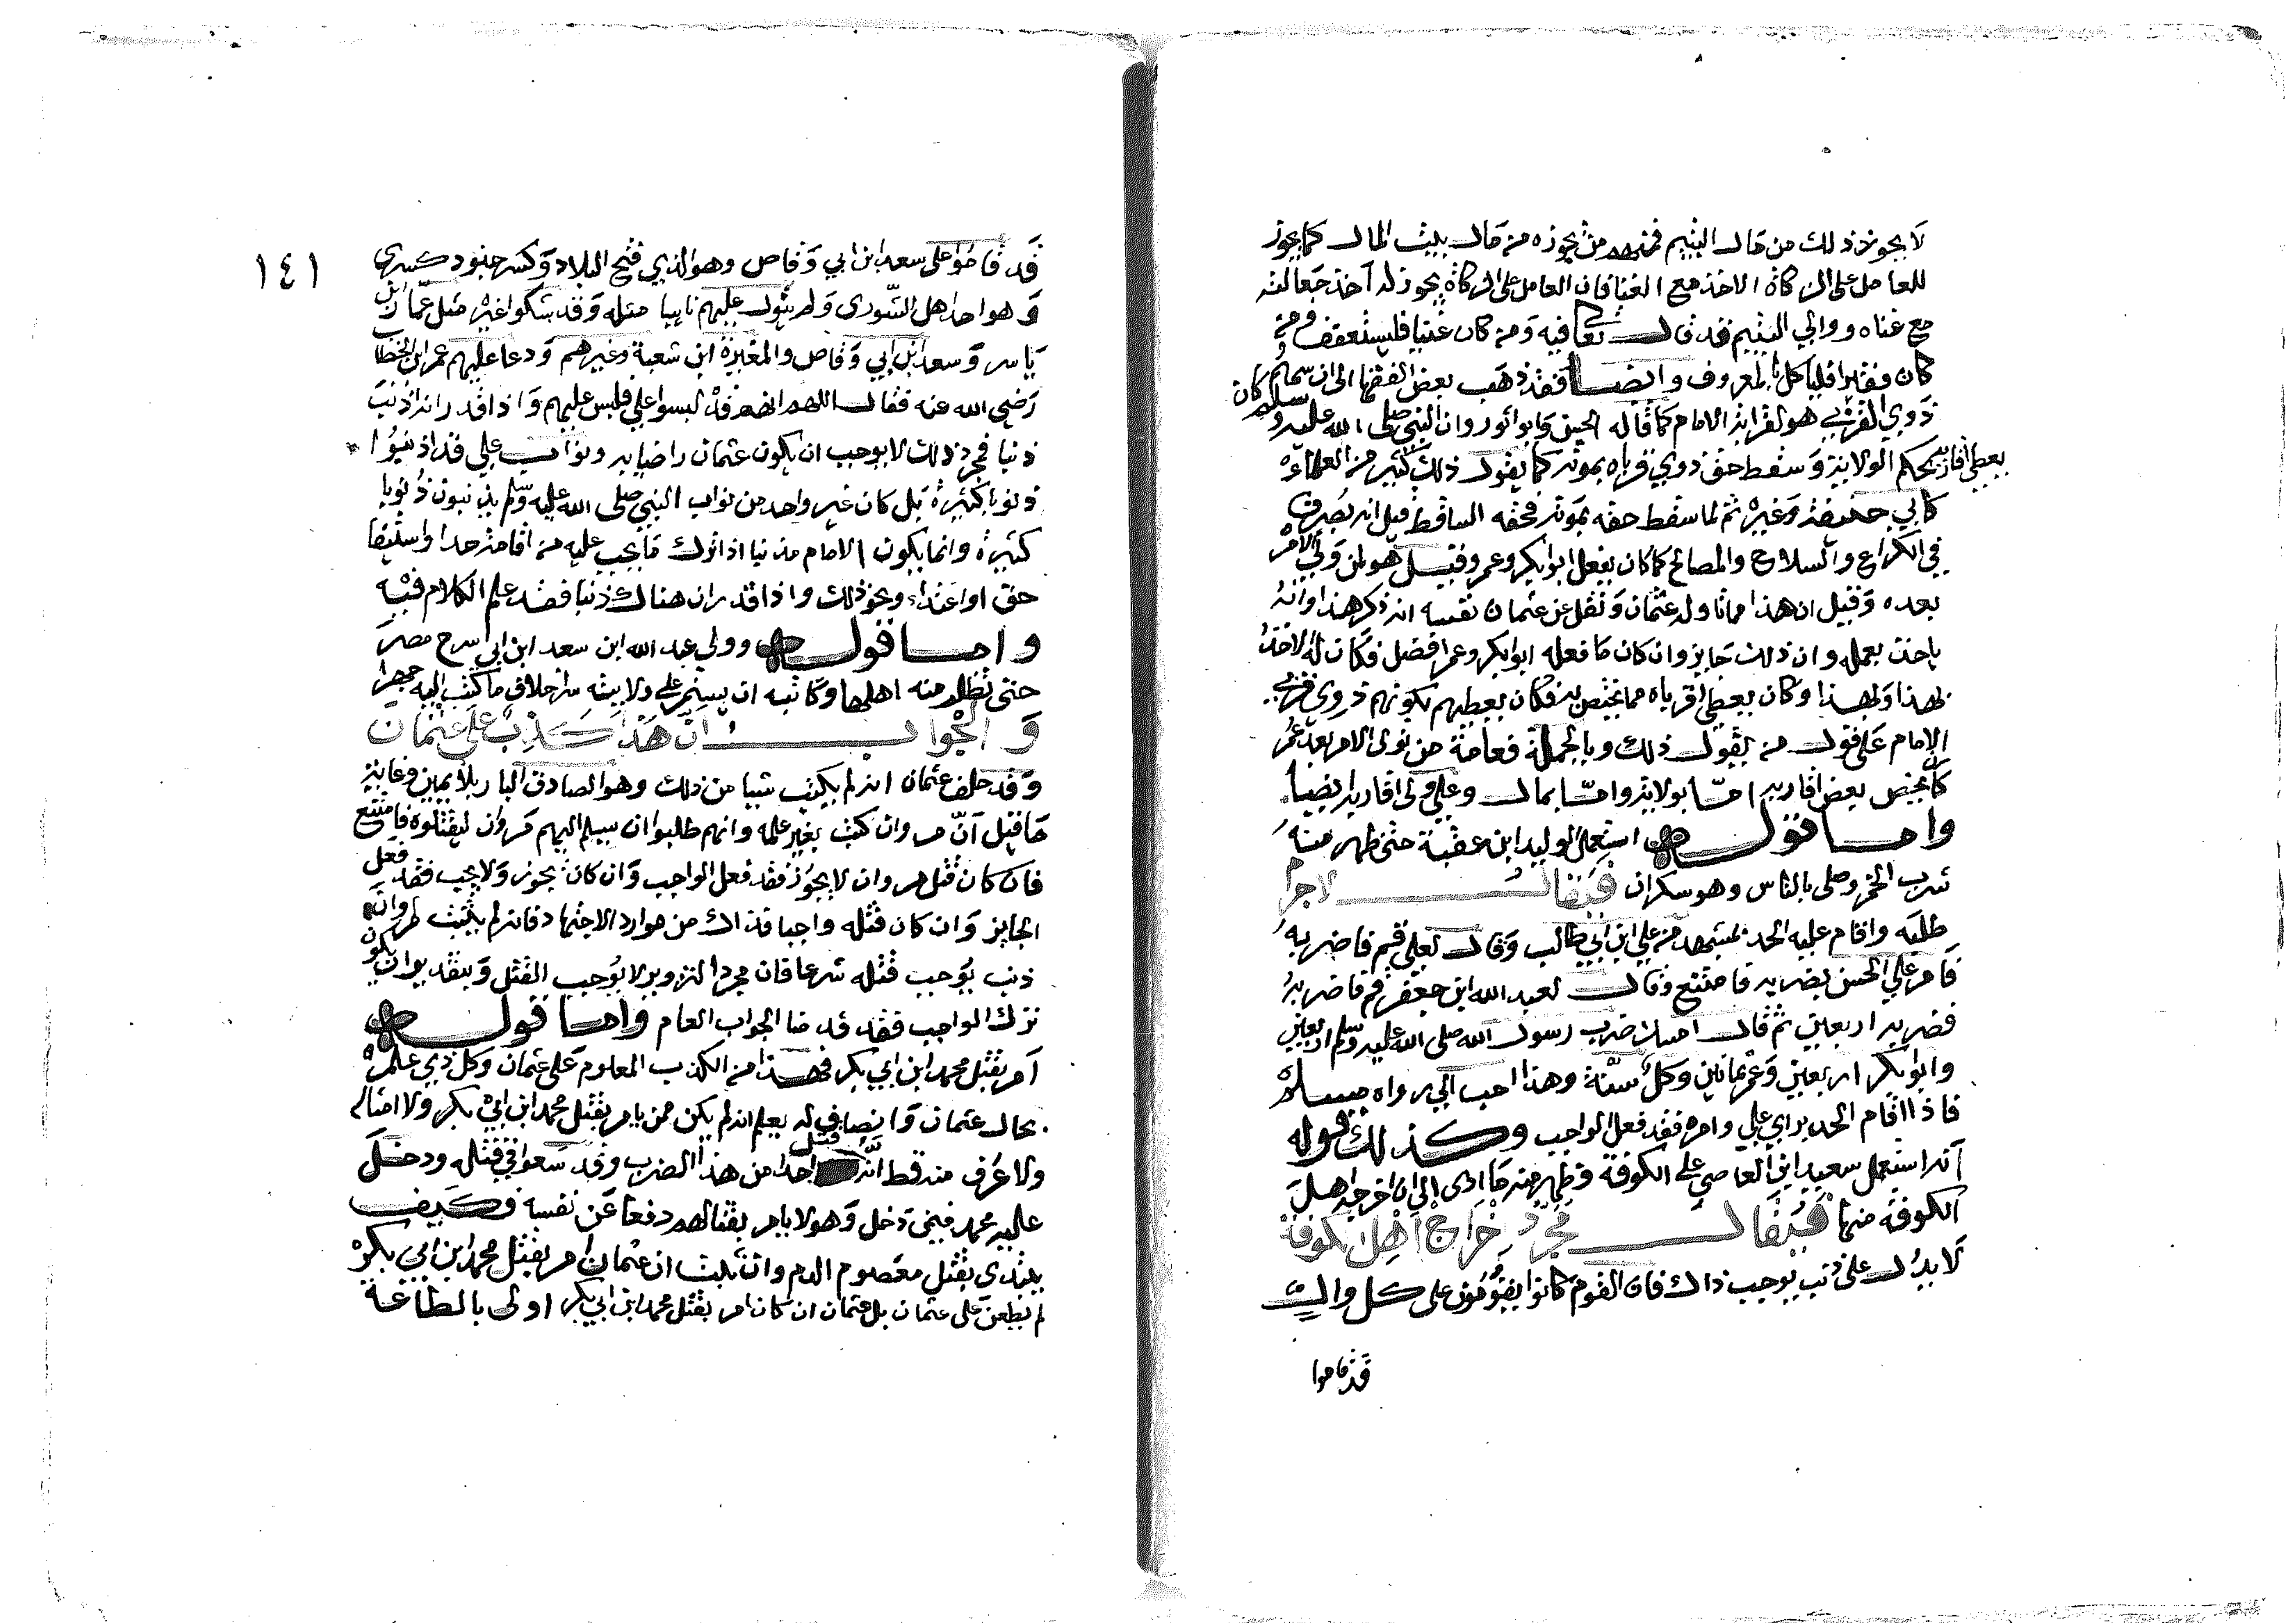 لا يجوز ذلك من مال اليتيم فمنهم من يجوزه من مال بيت المال كما يجوز
للعامل على الزكاة الاخذ مع الغنا فان العامل على الزكاة يجوز له اخذ جعالته
مع غناه ووالي اليتيم قد قال تعا فيه ومن كان غنيا فليستعفف ومن
كان فقيرا فلياكل بالمعروف وايضا فقد ذهب بعض الفقها الى ان سهام
ذوي القربي هو لقرابة الامام كما قاله الحسن وابو ثور وان النبي صلى الله عليه وسلم كان
يعطي اقاربه بحكم الولاية وسقط حق ذوي قرباه بموته كما يقول ذلك كثير من العلماء
كابي حنيفة وغيره ثم لما سقط حقه بموته فحقه الساقط قيل انه يصرف
في الكراع والسلاح والمصالح كما كان يفعل ابو بكر وعمر وقيل هو لمن ولي الامر
بعده وقيل ان هذا مما تاوله عثمان ونقل عن عثمان نفسه انه ذكر هذا وانه
ياخذ بعمله وان ذلك جايز وان كان ما فعله ابو بكر وعمر افضل فكان له الاخذ
لهذا ولهذا وكان يعطي اقرباه مما يختص به فكان يعطيهم لكونهم ذوي قربي
الامام على قول من يقول ذلك وبالجملة فعامة من تولى الامر بعد عمر
كان يخص بعض اقاربه اما بولاية واما بمال وعلي ولى اقاربه ايضا
واما قوله استعمل الوليد ابن عقبة حتى ظهر منه
شرب الخمر وصلى بالناس وهو سكران فيقال لا جرم
طلبه واقام عليه الحد بمشهد من علي ابن ابي طالب وقال لعلي قم فاضربه
فامر علي الحسن بضربه فامتنع وقال لعبد الله ابن جعفر قم فاضربه
فضربه اربعين ثم قال امسك ضرب رسول الله صلى الله عليه وسلم اربعين
وابو بكر اربعين وعمر ثمانين وكل سنة وهذا احب الي رواه مسلم
فاذا اقام الحد براي علي وامره فقد فعل الواجب وكذلك قوله
انه استعمل سعيد ابن العاصي على الكوفة وظهر منه ما ادى الى ان اخرجه اهل
الكوفة منها فيقال مجرد خراج اهل لكوفة
لا يدل على ذنب يوجب ذاك فان القوم كانوا يقومون على كل وال
قد قاموا
١٤١
قد قاموا على سعد ابن ابي وقاص وهو الذي فتح البلاد وكسر جنود كسرى
وهو احد اهل الشورى ولم يتول عليهم نايبا مثله وقد شكوا غيره مثل عمار ابن
ياسر وسعد ابن ابي وقاص والمغيرة ابن شعبة وغيرهم ودعا عليهم عمر ابن الخطاب
رضي الله عنه فقال اللهم انهم قد لبسوا علي فلبس عليهم واذا قدر انه اذنب
ذنبا فمجرد ذلك لا يوجب ان يكون عثمان راضيا به ونواب علي قد اذنبوا
ذنوبا كثيرة بل كان غير واحد من نواب النبي صلى الله عليه وسلم يذنبون ذنوبا
كثيرة وانما يكون الامام مذنبا اذا ترك ما يجب عليه من اقامة حد او استيفا
حق او اعتداء ونحو ذلك واذا قدر ان هناك ذنبا فقد علم الكلام فيه
واما قوله وولي عبد الله ابن سعد ابن ابي سرح مصر
حتى تظلم منه اهلها وكاتبه ان يستمر على ولايته سرا خلاف ما كتب اليه جهرا
والجواب ان هذا كذب على عثمان
وقد حلف عثمان انه لم يكتب شيا من ذلك وهو الصادق البار بلا يمين وغاية
ما قيل ان مروان كتب بغير علمه وانهم طلبوا ان يسلم اليهم مروان ليقتلوه فامتنع
فان كان قتل مروان لا يجوز فقد فعل الواجب وان كان يجوز ولا يجب فقد فعل
الجايز وان كان قتله واجبا فذاك من موارد الاجتهاد فانه لم يثبت لمروان
ذنب يوجب قتله شرعا فان مجرد التزوير لا يوجب القتل وبتقدير ان يكون
ترك الواجب فقد قدمنا الجواب العام واما قوله
امر بقتل محمد ابن ابي بكر فهذا من الكذب المعلوم على عثمان وكل ذي علم
بحال عثمان وانصاف له يعلم انه لم يكن ممن يامر بقتل محمد ابن ابي بكر ولا امثاله
ولا عرف منه قط انه قتل احدا من هذا الضرب وقد سعوا في قتله ودخل
عليه محمد فيمن دخل وهو لا يامر بقتالهم دفعا عن نفسه فكيف
يبتدي بقتل معصوم الدم وان ثبت ان عثمان امر بقتل محمد ابن ابي بكر
لم يطعن على عثمان بل عثمان ان كان امر بقتل محمد ابن ابي بكر اولى بالطاعة